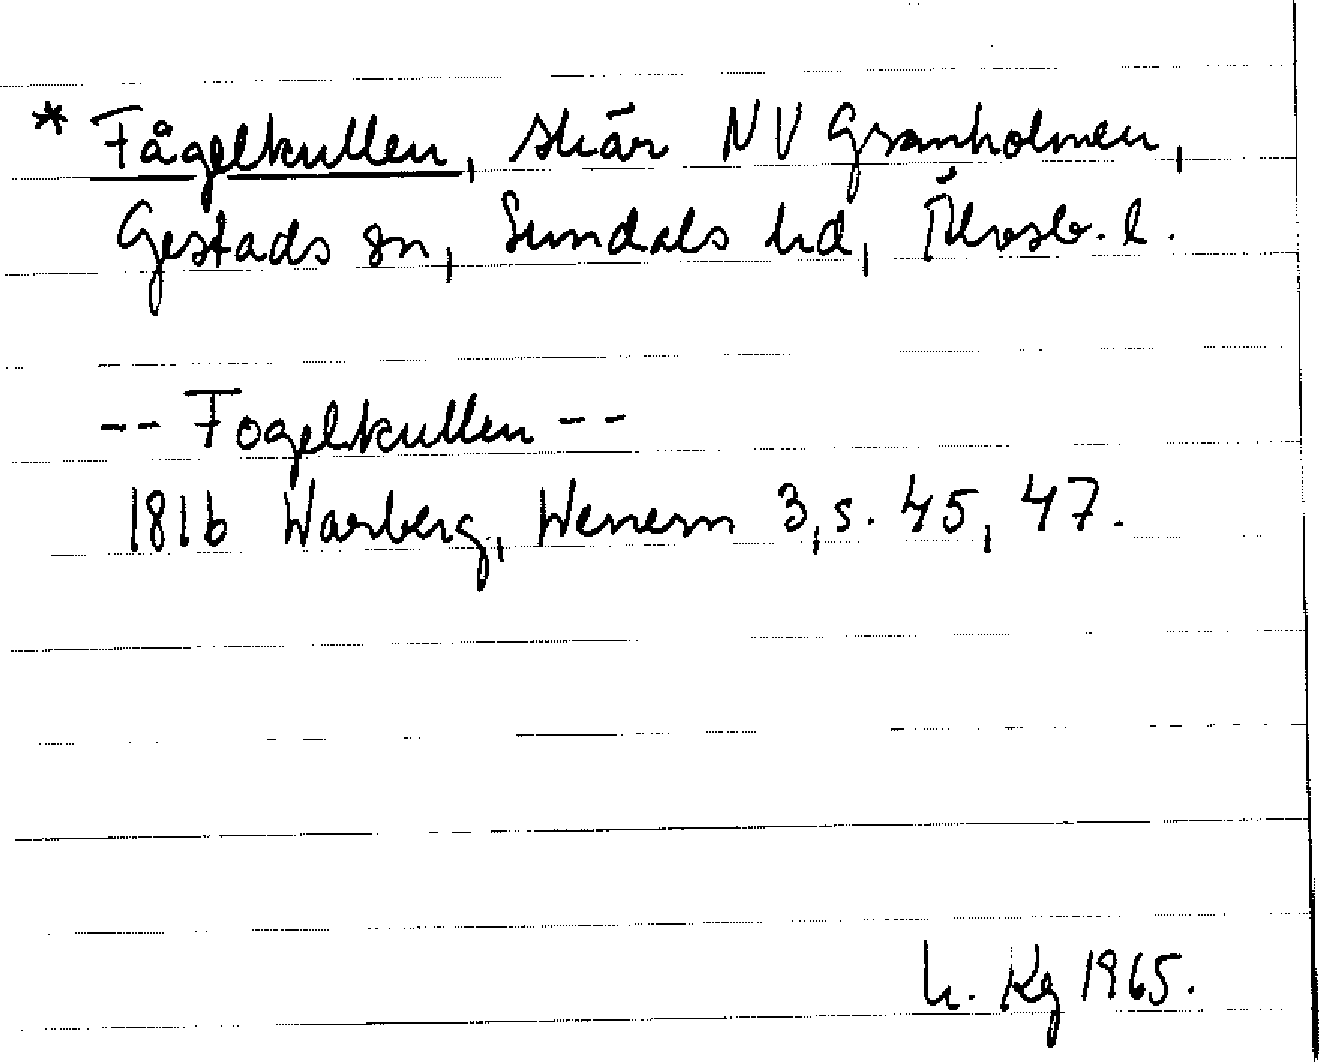 * Fågelkullen, skär NV Granholmen,
Gestads sn, Sundals hd, Älvsb. l.
-- Fogelkullen --
1816 Warberg, Wenern 3, s. 45, 47.
h. Kg 1965.